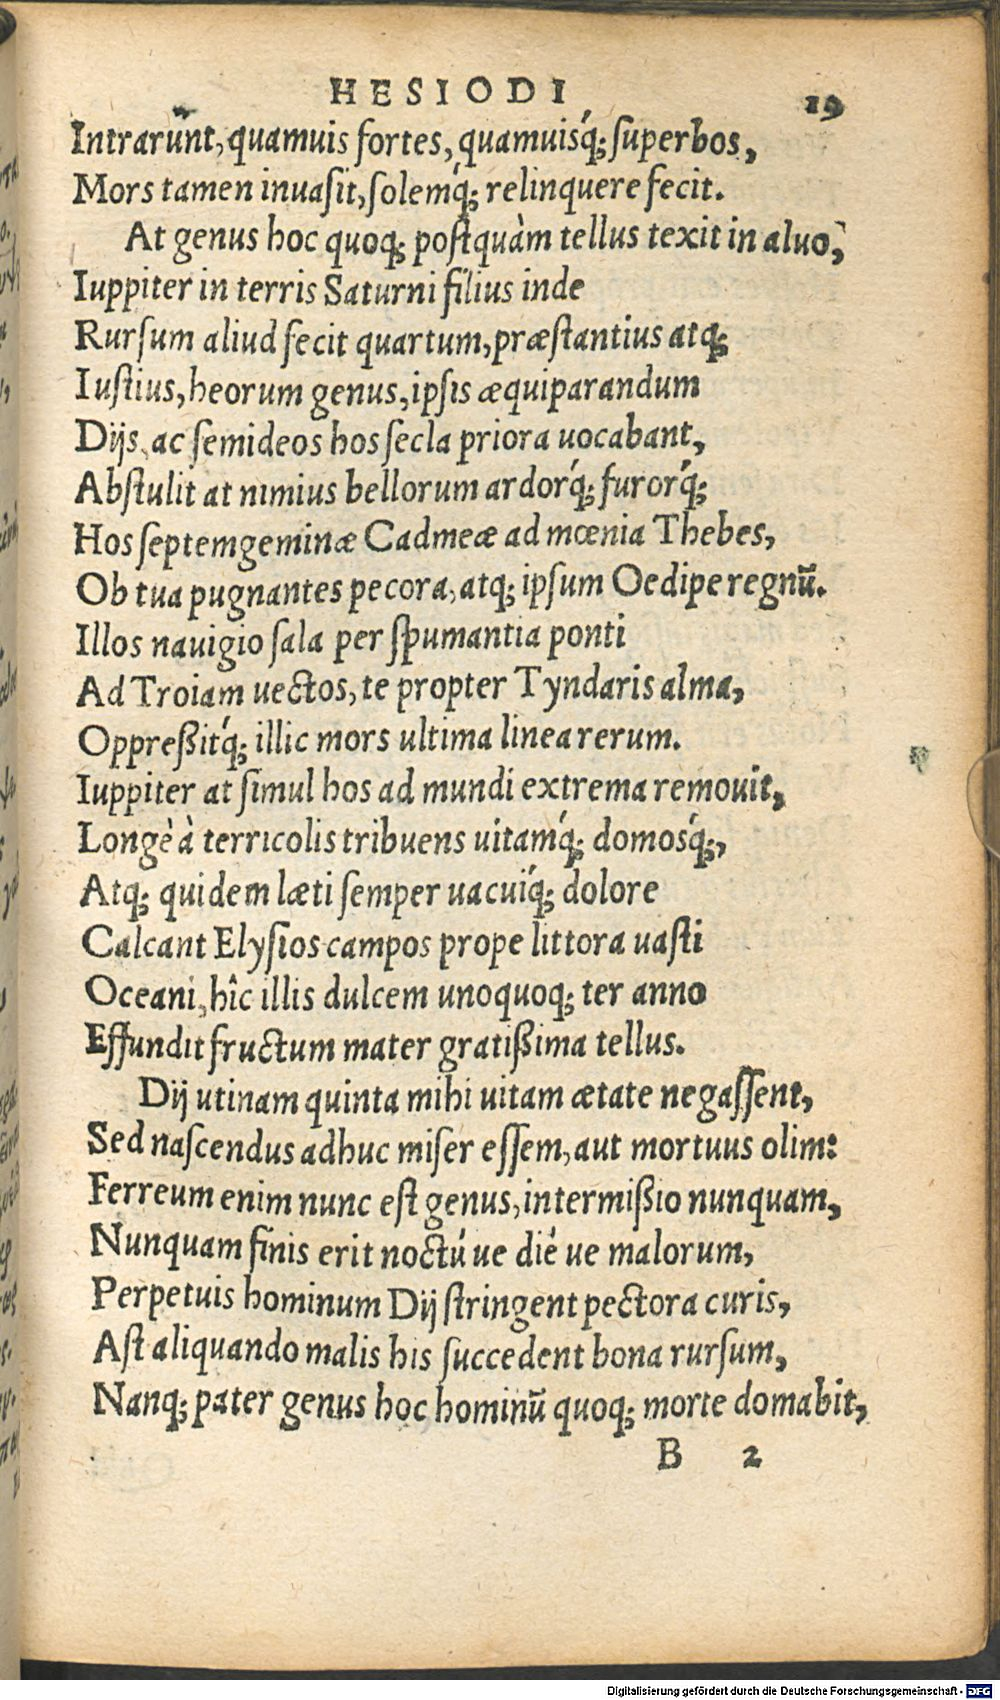 HESIODI 19
Intrarũnt, quamuis fortes, quamuisq́; superbos,
Mors tamen inuasit, solemq́; relinquere fecit.
At genus hoc quoq; postquàm tellus texit in aluo,
Iuppiter in terris Saturni filius inde
Rursum aliud fecit quartum, præstantius atq;
Iustius, heorum genus, ipsis æquiparandum
Dijs, ac semideos hos secla priora uocabant,
Abstulit at nimius bellorum ardorq́; furorq́;
Hos septemgeminæ Cadmeæ ad mœnia Thebes,
Ob tua pugnantes pecora, atq; ipsum Oedipe regnũ.
Illos nauigio sala per spumantia ponti
Ad Troiam uectos, te propter Tyndaris alma,
Oppreßitq́; illic mors ultima linea rerum.
Iuppiter at simul hos ad mundi extrema remouit,
Longè à terricolis tribuens uitamq́; domosq́;,
Atq; quidem læti semper uacuiq́; dolore
Calcant Elysios campos prope littora uasti
Oceani, hîc illis dulcem unoquoq; ter anno
Effundit fructum mater gratißima tellus.
Dij utinam quinta mihi uitam ætate negassent,
Sed nascendus adhuc miser essem, aut mortuus olim:
Ferreum enim nunc est genus, intermißio nunquam,
Nunquam finis erit noctú ue dié ue malorum,
Perpetuis hominum Dij stringent pectora curis,
Ast aliquando malis his succedent bona rursum,
Nanq; pater genus hoc hominũ quoq; morte domabit,
B 2
Digitalisierung gefördert durch die Deutsche Forschungsgemeinschaft - DFG